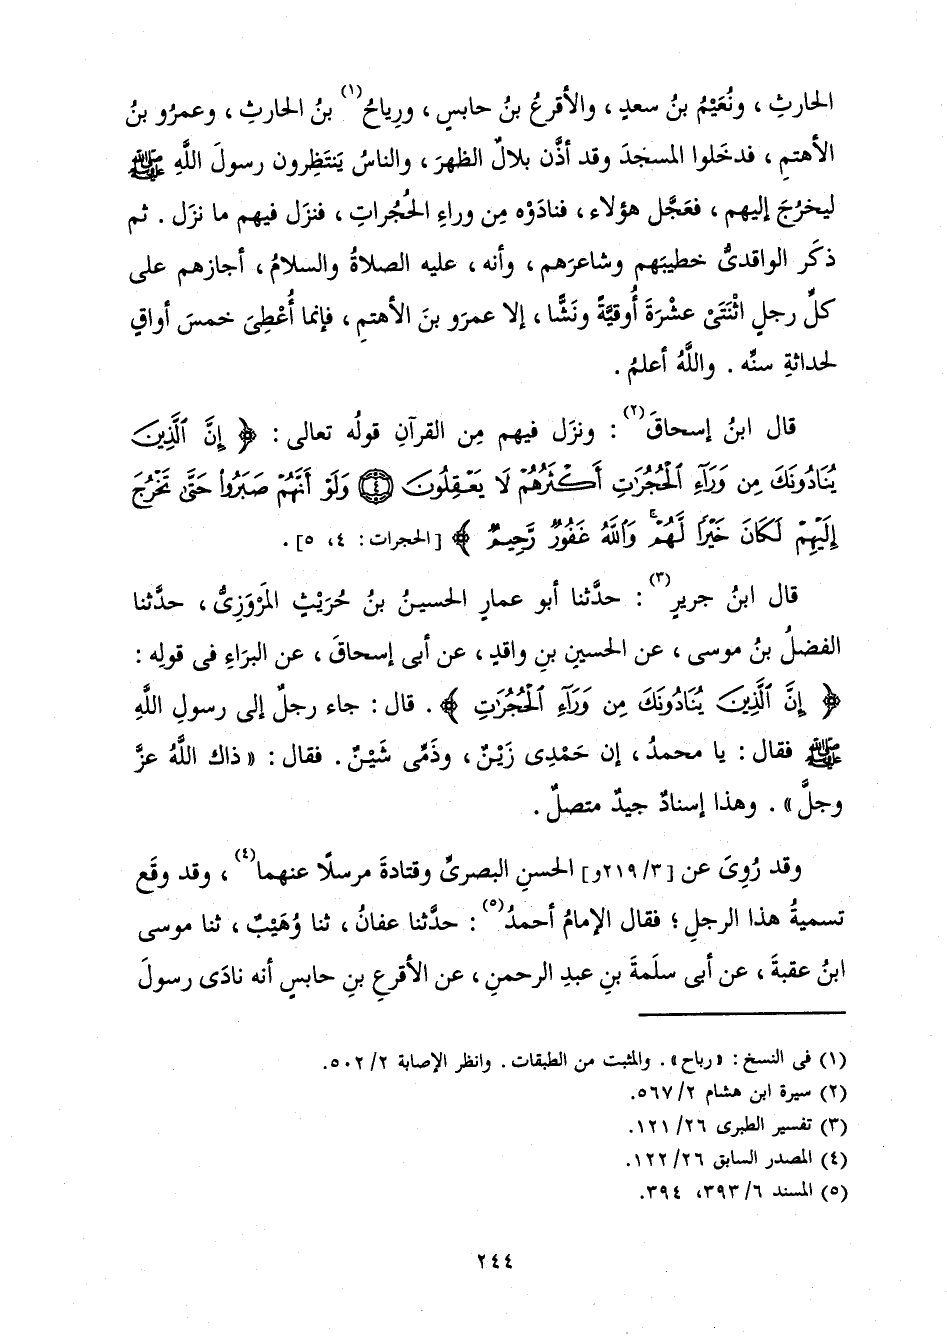 الحارثِ ، ونُعَيْمُ بنُ سعدٍ ، والأقرعُ بنُ حابسٍ ، ورِياحُ(١) بنُ الحارثِ ، وعمرُو بنُ
الأهتمِ ، فدخَلوا المسجدَ وقد أذَّن بلالٌ الظهرَ ، والناسُ يَنتَظِرون رسولَ اللَّهِ ﷺ
ليخرُجَ إليهم ، فعَجَّل هؤلاء ، فنادَوْه مِن وراءِ الحُجُراتِ ، فنزَل فيهم ما نزَل . ثم
ذكَر الواقدىُّ خطيبَهم وشاعرَهم ، وأنه ، عليه الصلاةُ والسلامُ ، أجازهم على
كلِّ رجلٍ اثْنَتَىْ عشْرةَ أُوقيَّةً ونَشًّا ، إلا عمرَو بنَ الأهتمِ ، فإنما أُعْطِىَ خمسَ أواقٍ
لحداثةِ سنِّه . واللَّهُ أعلمُ .
قال ابنُ إسحاقَ(٢) : ونزَل فيهم مِن القرآنِ قولُه تعالى : ﴿ إِنَّ ٱلَّذِينَ
يُنَادُونَكَ مِن وَرَآءِ ٱلْحُجُرَٰتِ أَكْثَرُهُمْ لَا يَعْقِلُونَ ﴿٤﴾ وَلَوْ أَنَّهُمْ صَبَرُوا۟ حَتَّىٰ تَخْرُجَ
إِلَيْهِمْ لَكَانَ خَيْرًا لَّهُمْ ۚ وَٱللَّهُ غَفُورٌ رَّحِيمٌ ﴾ [الحجرات : ٤، ٥] .
قال ابنُ جريرٍ(٣) : حدَّثنا أبو عمارٍ الحسينُ بنُ حُرَيْثٍ المَرْوَزِىُّ ، حدَّثنا
الفضلُ بنُ موسى ، عن الحسينِ بنِ واقدٍ ، عن أبى إسحاقَ ، عن البرَاءِ فى قولِه :
﴿ إِنَّ ٱلَّذِينَ يُنَادُونَكَ مِن وَرَآءِ ٱلْحُجُرَٰتِ ﴾ . قال : جاء رجلٌ إلى رسولِ اللَّهِ
ﷺ فقال : يا محمدُ ، إن حَمْدِى زَيْنٌ ، وذَمِّى شَيْنٌ . فقال : « ذاك اللَّهُ عزَّ
وجلَّ » . وهذا إسنادٌ جيدٌ متصلٌ .
وقد رُوِىَ عن [٢١٩/٣و] الحسنِ البصرىِّ وقتادةَ مرسلًا عنهما(٤) ، وقد وقَع
تسميةُ هذا الرجلِ ؛ فقال الإمامُ أحمدُ(٥) : حدَّثنا عفانُ ، ثنا وُهَيْبٌ ، ثنا موسى
ابنُ عقبةَ ، عن أبى سلَمةَ بنِ عبدِ الرحمنِ ، عن الأقرعِ بنِ حابسٍ أنه نادَى رسولَ
(١) فى النسخ : « رباح » . والمثبت من الطبقات . وانظر الإصابة ٢/ ٥٠٢.
(٢) سيرة ابن هشام ٢/ ٥٦٧.
(٣) تفسير الطبرى ٢٦/ ١٢١.
(٤) المصدر السابق ٢٦/ ١٢٢.
(٥) المسند ٦/ ٣٩٣، ٣٩٤.
٢٤٤